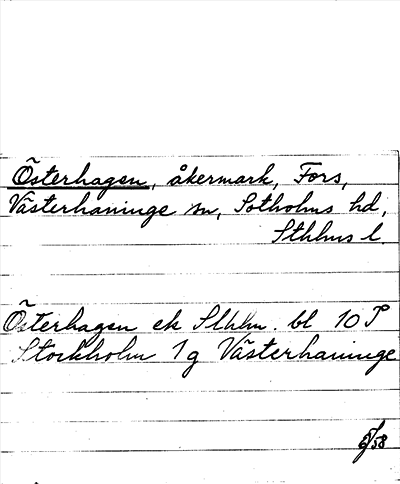 Österhagen, åkermark, Fors,
Västerhaninge sn, Sotholms hd,
Sthlms l.
Österhagen ek Sthlm. bl 10 I
Stockholm 1g Västerhaninge
58